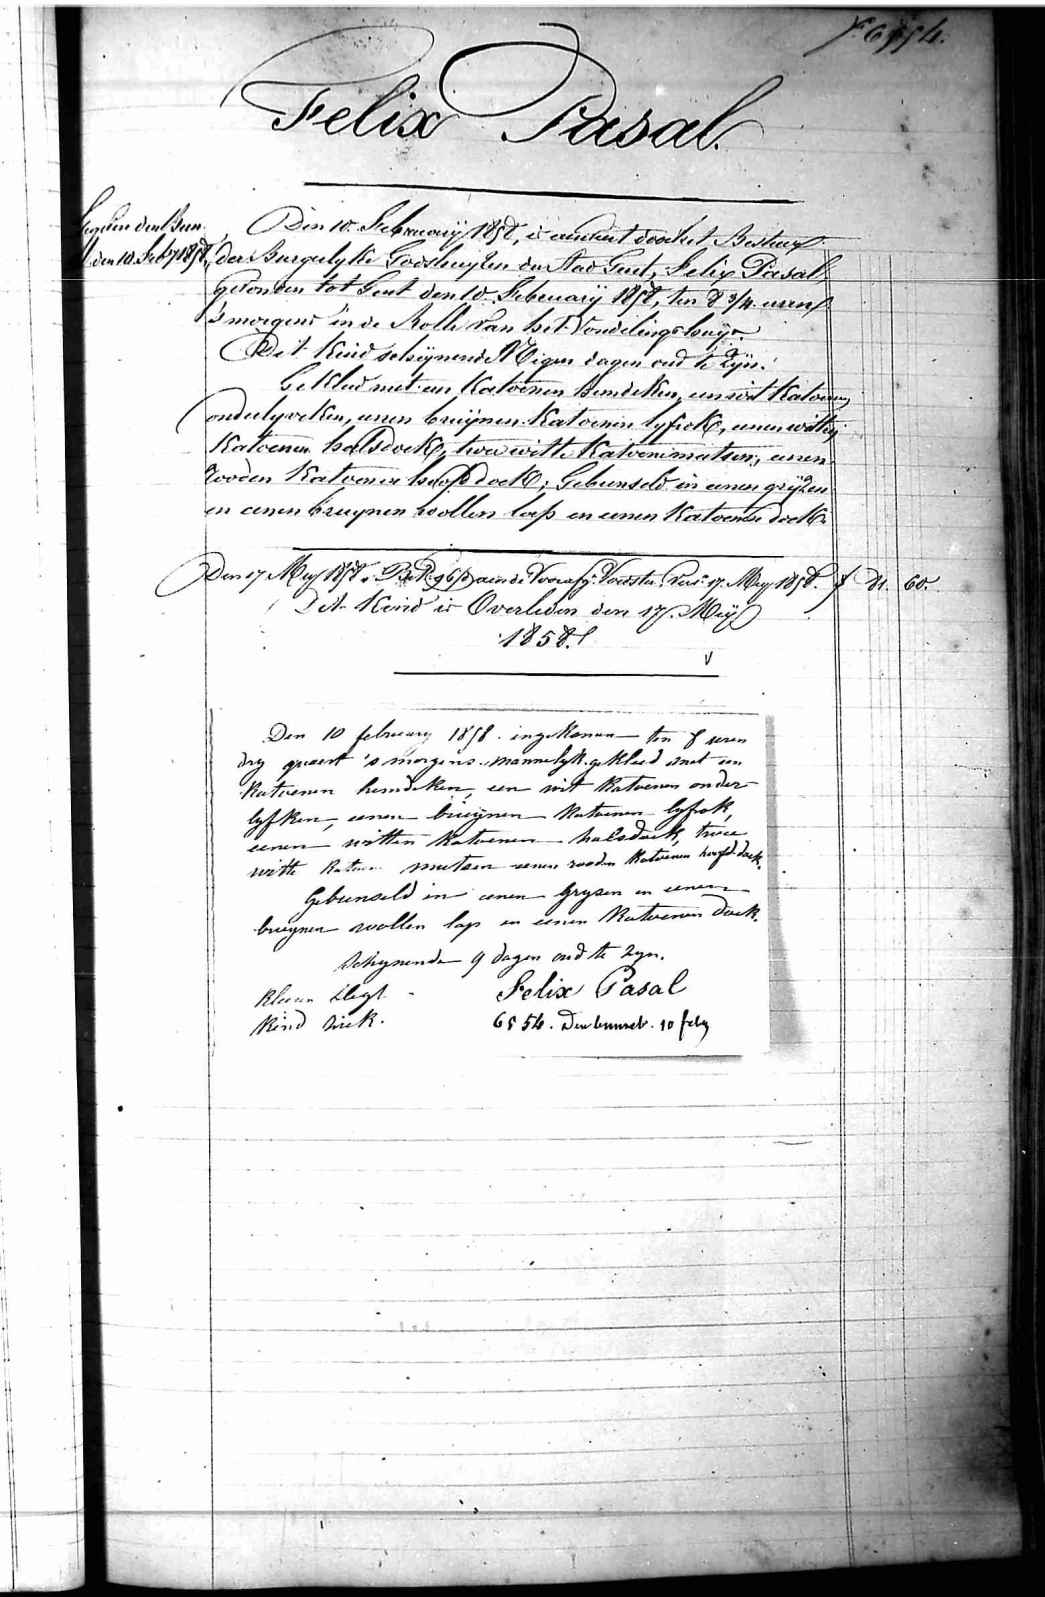 6554.
Felix Pasal.
den 10 Feby 1858,
Den 10 February 1858, is aenveert door het Bestuer
der Burgelyke Godshuyzen der Stad Gent, Felix Pasal,
gevonden tot Gent den 10 February 1858, ten 8 3/4 uren
's morgens in de Rolle van het Vondelingshuys.
Dit Kind schynende Eigen dagen oud te zyn.
Gekleed met een Katoenen hemdeken, een wit Katoenen
onderlyveken, eenen bruynen Katoenen lyfrok, eenen witten
Katoenen halsdoek, twee witte Katoene mutsen, eenen
rooden Katoenen hoofddoek; Gebunseld in eenen gryzen
en eenen bruynen wollen lap en eenen Katoenen doek.
Den 17 Mey 1858. aen de 17 Mey 1858. f 21. 60.
Dit Kind is Overleden den 17. Mey
1858.
Den 10 february 1858. ingekomen ten 8 uren
dry quaert 's morgens. mannelyk. gekleed met een
Katoenen hemdeken, een wit Katoenen onder-
lyfken, eenen bruynen Katoenen lyfrok,
eenen witten Katoenen halsdoek, twee
witte Katoen mutsen eenen rooden Katoenen hoofd-doek.
Gebunseld in eenen Grysen en eenen
bruynen wollen lap en eenen Katoenen doek.
Schynende 9 dagen oud te zyn.
Kleeren slegt. Felix Pasal
Kind ziek. 6554. 10 feby